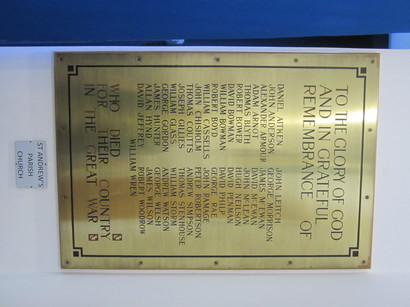 TO THE GLORY OF GOD
AND IN GRATEFUL
REMEMBRANCE OF
DANIEL AITKEN JOHN LEITCH
JOHN ANDERSON GEORGE MORRISON
ALEXANDER ARMOUR JAMES McEWAN
ADAM DAVID McEWAN
THOMAS BLYTH JOHN McLEAN
ROBERT BOWER NEILSON
DAVID BOWMAN DAVID PENMAN
WILLIAM BOWMAN DAVID PHILP
ROBERT BOYD GEORGE RAE
WILLIAM CASSELLS JOHN RAMAGE
JOHN CHISHOLM PETER ROBERTSON
THOMAS COUTTS ANDREW SIMPSON
JOSEPH GILLIES THOMAS STENHOUSE
WILLIAM GLASS WILLIAM STORM
GEORGE GORDON ANDREW WATSON
JAMES HUNTER GEORGE WELSH
ALLAN HYND JAMES WILSON
DAVID JEFFREY ROBERT WOODROW
WILLIAM WREN
WHO DIED
FOR THEIR COUNTRY
IN THE GREAT WAR
ST ANDREW'S
PARISH
CHURCH